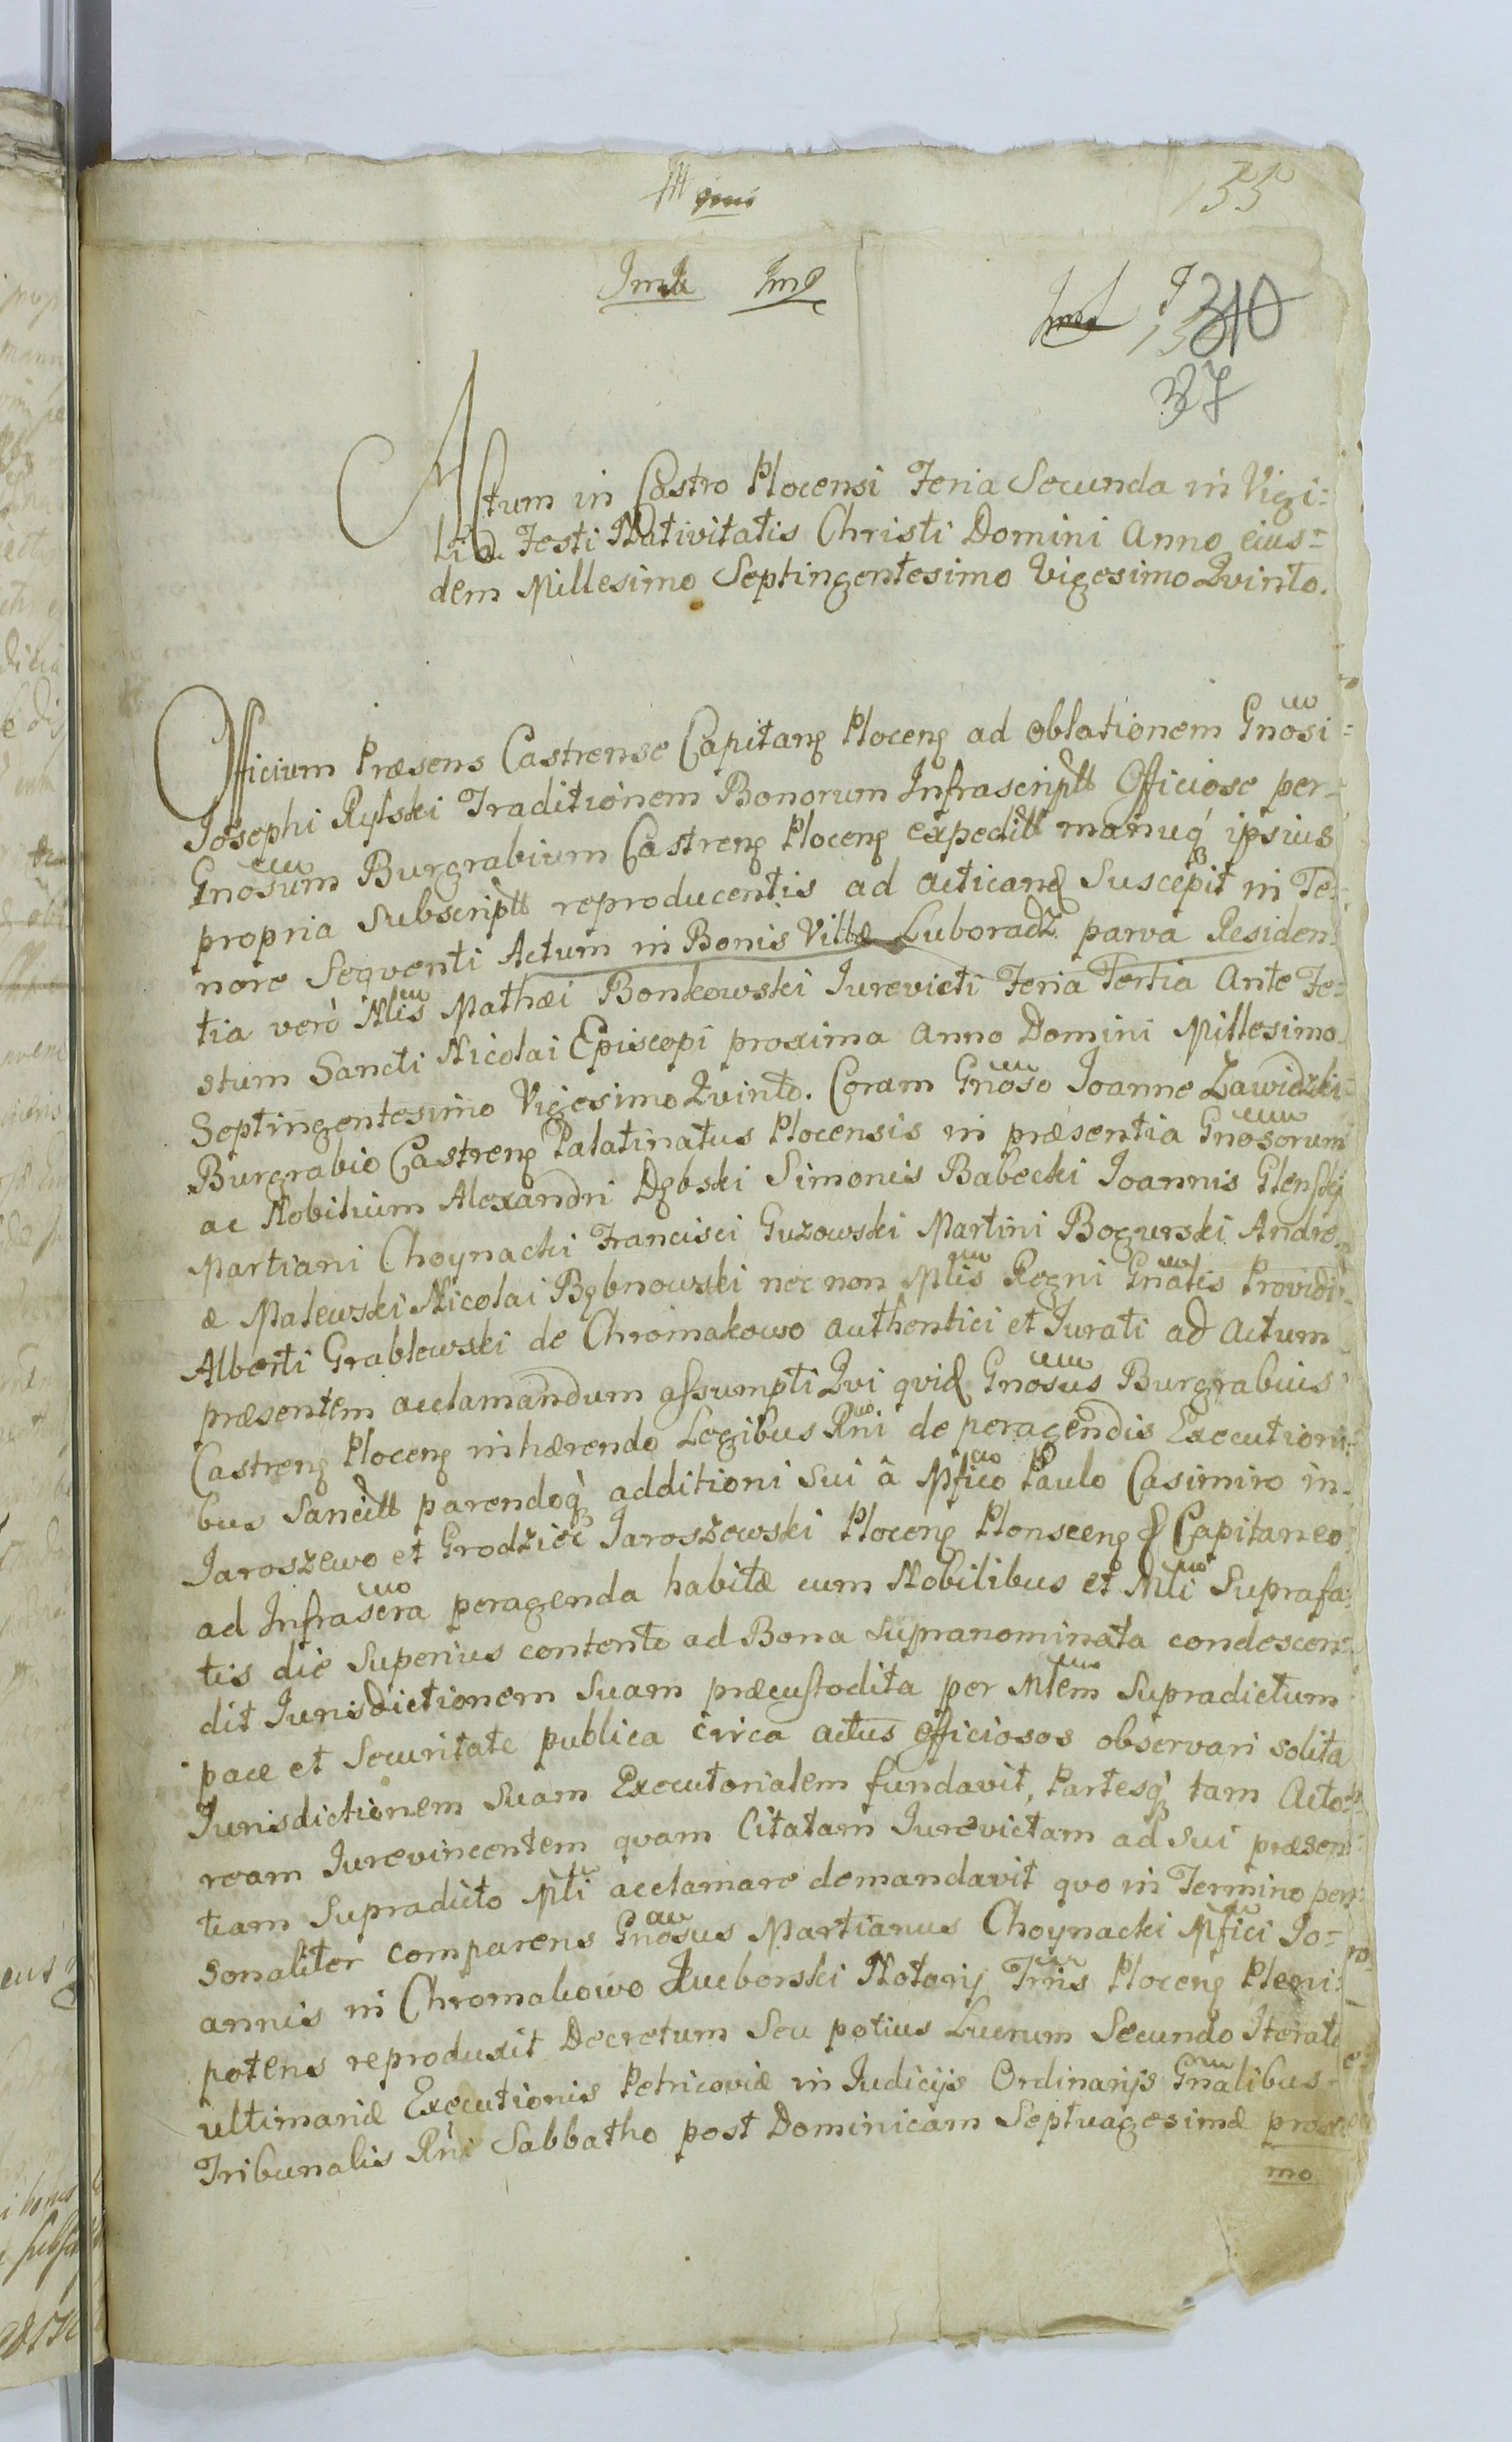 155
310
37
Actum in Castro Plocensi Feria Secunda in Vigi=
lia Festi Nativitatis Christi Domini Anno eius=
dem Millesimo Septingentesimo Vigesimo Qvinto.
Officium Præsens Castrense Capitang Ploceng ad oblationem Gnosi
Josephi Rylski Traditionem Bonorum Infrascriptt Officiose per=
Gnosum Burgrabium Castreng Ploceng expeditt manuq ipsius
propria Subscriptt reproducentis ad acticand Suscepit in Te=
nore Seqventi Actum in Bonis Villæ Luboradz parva Residen=
tia verò Nlis Mathæi Bonkowski Jurevicti Feria Tertia Ante Fe=
stum Sancti Nicolai Episcopi proxima Anno Domini Millesimo
Septingentesimo Vigesimo Qvinto. Coram Gnoso Joanne Zawidzki
Burgrabio Castreng Palatinatus Plocensis in præsentia Gnosorum
ac Nobilium Alexandri Dębski Simonis Babecki Joannis Glenskj
Martiani Choynacki Francisci Guzowski Martini Bogurski Andre=
æ Malewski Nicolai Bębnowski nec non Mlis Regni Gnalis Providi
Alberti Grablewski de Chromakowo authentici et Jurati ad actum
præsentem acclamandum assumpti Qvi qvid Gnosus Burgrabius
Castreng Ploceng inhærendo Legibus Rni de peragendis Executioni=
bus Sancitt parendoq additioni sui â Mfico Paulo Casimiro in
Jaroszewo et Grodziec Jaroszewski Ploceng Plonsceng & Capitaneo
ad Infrascra peragenda habitæ cum Nobilibus et Mli Suprafa=
tis die Superius contento ad Bona supranominata condescen=
dit Jurisdictionem suam præcustodita per Mlem Supradictum
pace et Securitate publica circa actus officiosos observari solita
Jurisdictionem suam Executorialem fundavit, Partesq tam Acto=
ream Jurevincentem qvam Citatam Jurevictam ad sui præsen=
tiam Supradicto Mli acclamare demandavit qvo in Termino per=
sonaliter comparens Gnosus Martianus Choynacki Mfici Jo=
annis in Chromakowo Zueborski Notarij Trris Ploceng Pleni=
potens reproduxit Decretum Seu potius Lucrum Secundo Iterate
ultimariæ Executionis Petricoviæ in Judicijs Ordinarijs Gnalibus
Tribunalis Rni Sabbatho post Dominicam Septuagesimæ proxi
mo